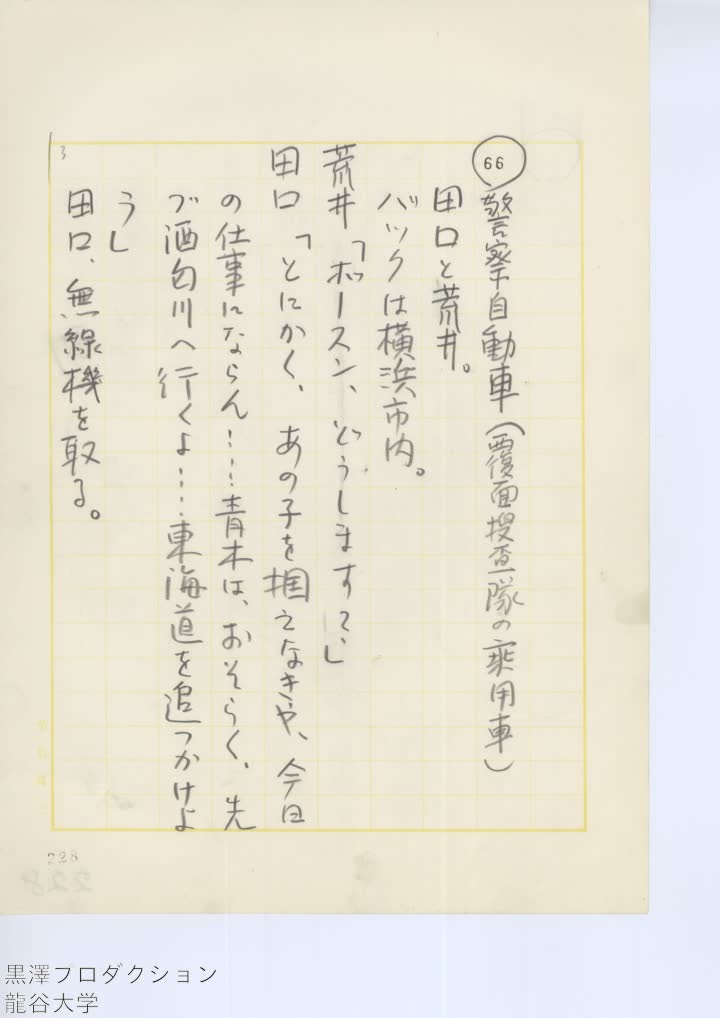 66
警察自動車(覆面捜査隊の乗用車)
田口と荒井。
バックは横浜市内。
荒井「ボースン、どうします?」
田口「とにかく、あの子を掴えなきゃ、今日
の仕事にならん……青木は、おそらく、先
づ酒匂川へ行くよ……東海道を追つかけよ
う」
田口、無線機を取る。
3
228
黒澤プロダクション
龍谷大学